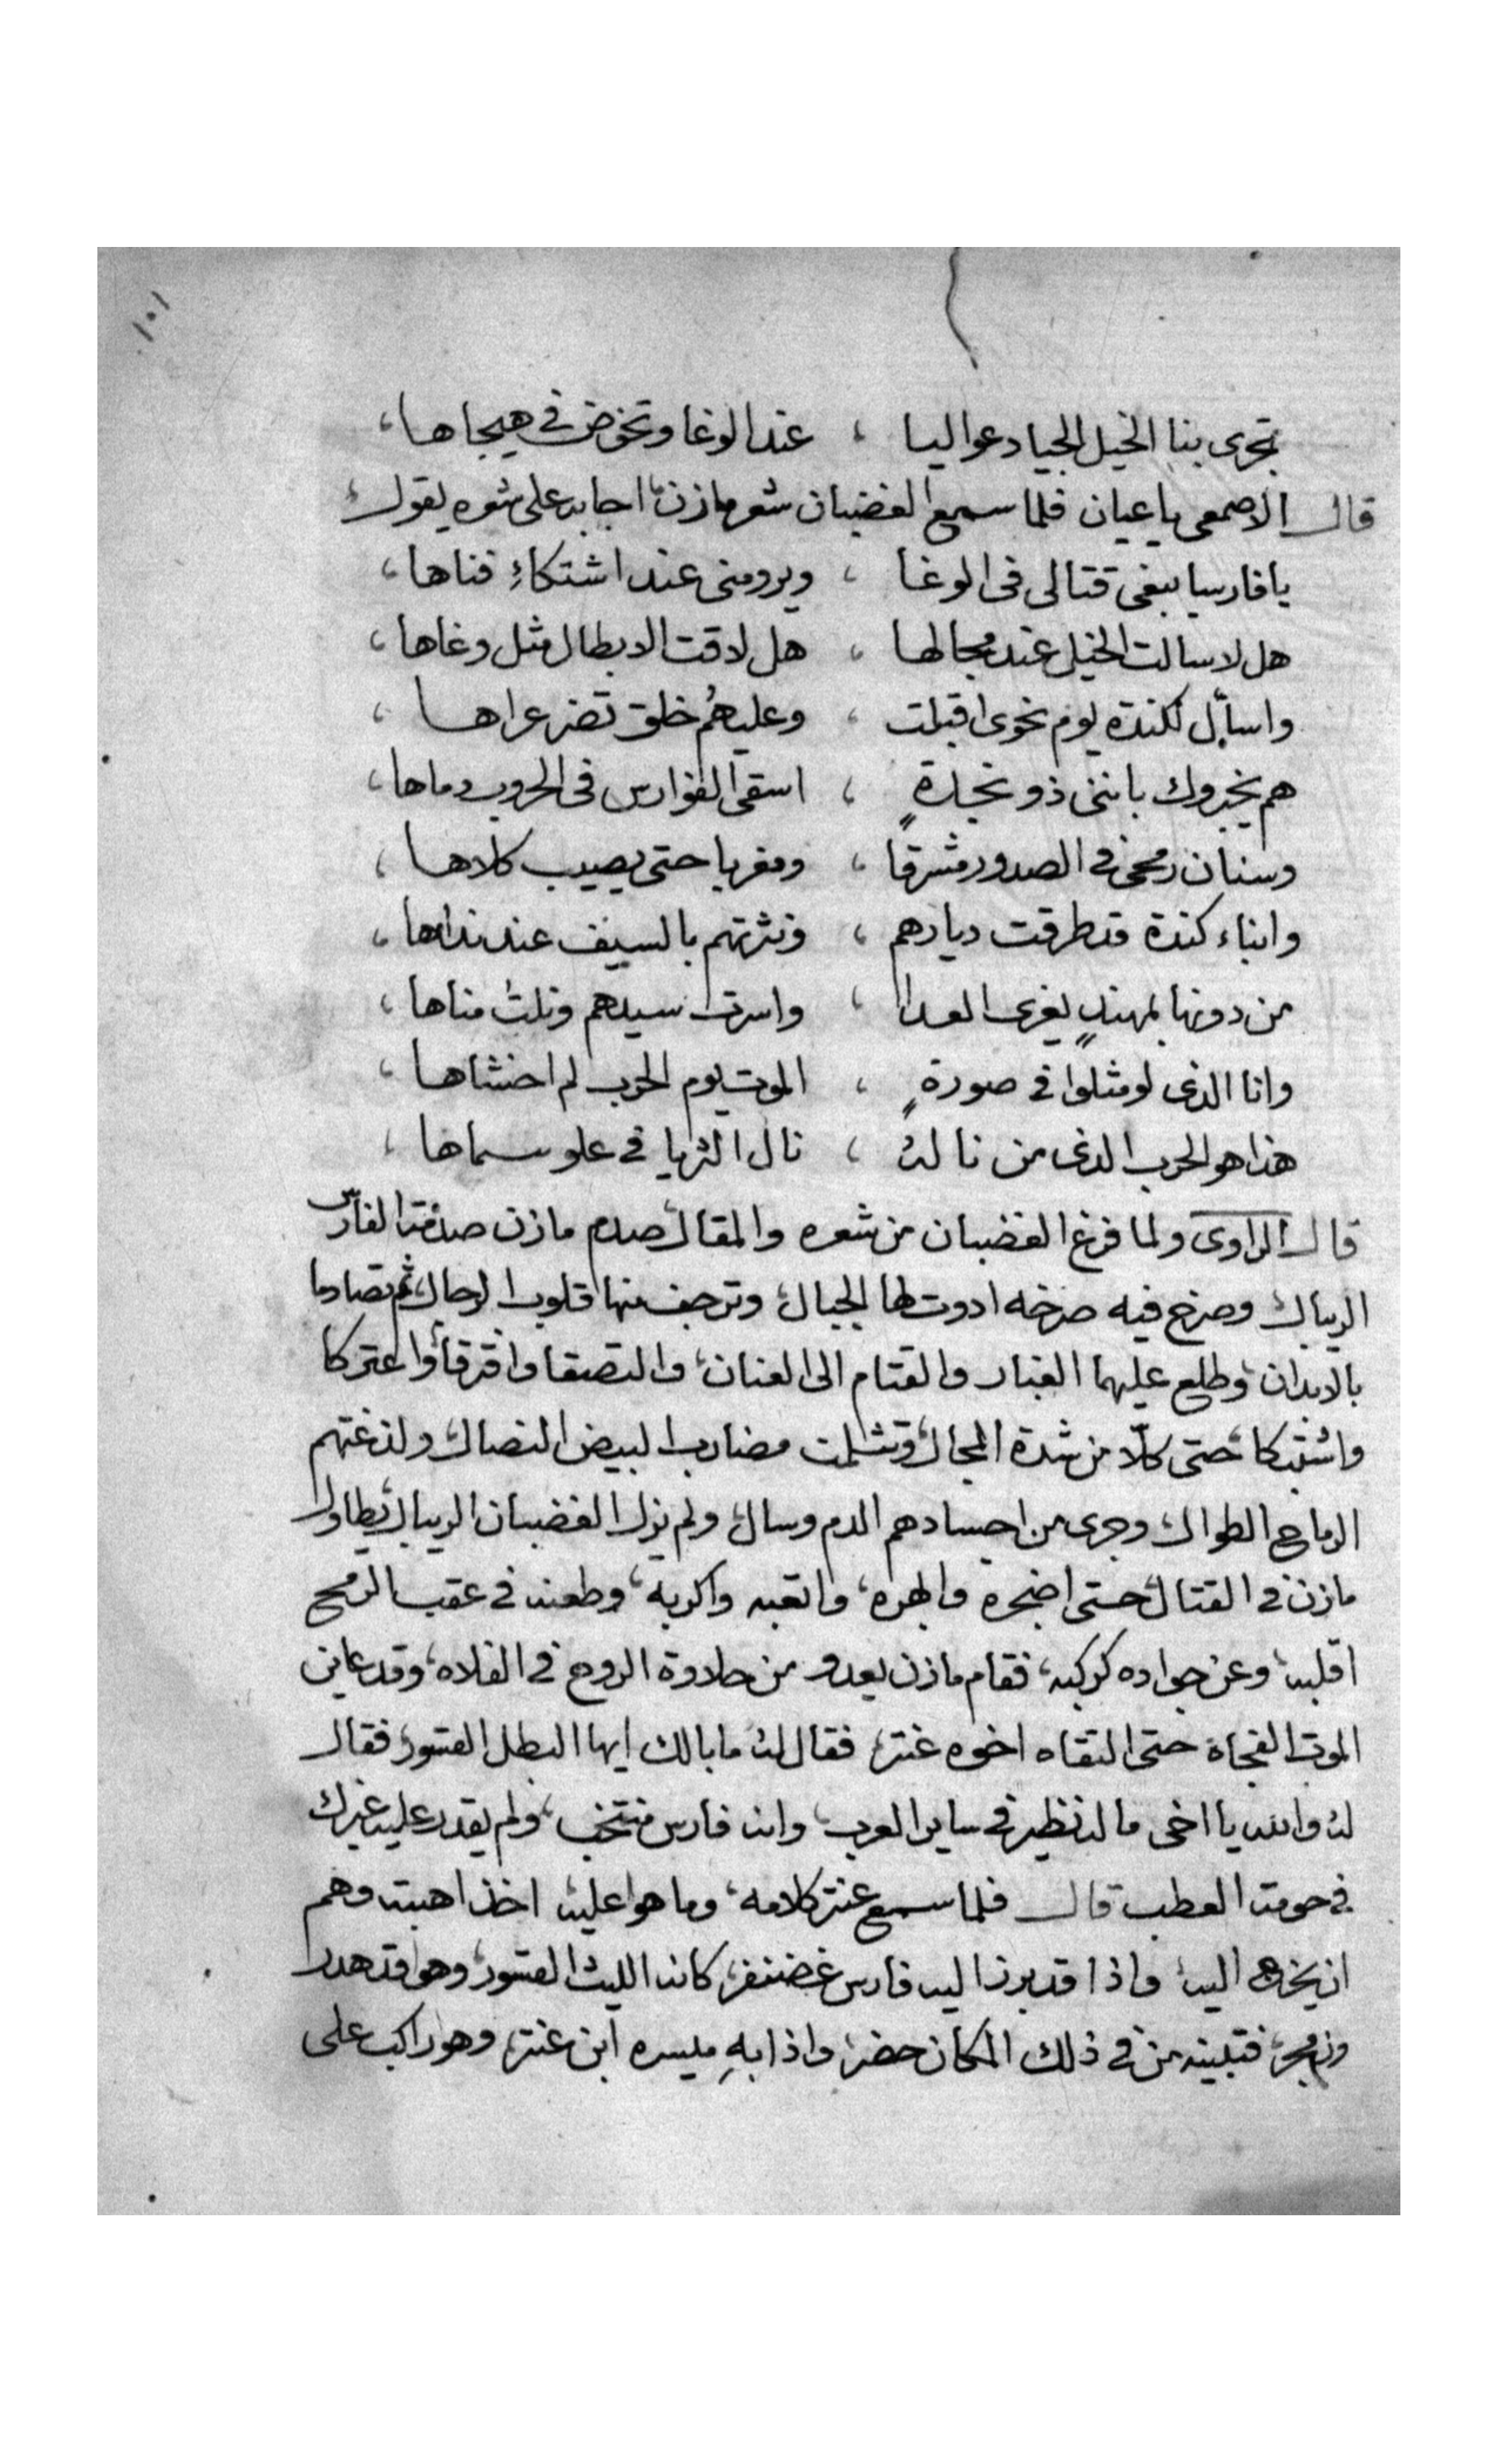 ١٠١
تجرى بنا الخيل الجياد عواليا ، عند الوغا وتخوض فى هيجاها ،
قال الاصمعى ياعيان فلما سمع الغضبان شعر مازن، اجابه على شعره يقول
يا فارسا يبغى قتالى فى الوغا ، ويرومنى عند اشتكاءِ قناها ،
هل لا سالت الخيل عند مجالها ، هل لاقت الابطال مثل وغاها ،
واسأل لكندة يوم نحوى اقبلت ، وعليهُم خلق تضر عراها ،
هم يخبروك باننى ذو نجدةٍ ، اسقى الفوارس فى الحروب دماها ،
وسنان رمحى فى الصدور مشرقا ، ومغربا حتى يصيب كلاها ،
وابناء كندة قد طرقت ديارهم ، ونثرتهم بالسيف عند نداها ،
من دونها بمهندٍ يفرى العدا ، واسرت سيدهم ونلت مناها ،
وانا الذى لو مثلوا فى صورةٍ ، الموت يوم الحرب لم اخشاها ،
هذا هو الحرب الذى من ناله ، نال الثريا فى علو سماها ،
قال الراوى ولما فرغ الغضبان من شعره والمقال، صدم مازن صدمة الفارس
الريبال، وصرخ فيه صرخه ادوت لها الجبال، وترجف منها قلوب الرجال، ثم تصادما
بالابدان، وطلع عليهما الغبار والقتام الى العنان، والتصقا وافترقا، واعتركا
واشتبكا، حتى كلّا من شدة المجال، وتثلمت مضارب البيض النصال، ولدغتهم
الرماح الطوال، وجرى من اجسادهم الدم وسال، ولم يزل الغضبان الريبال، يطاول
مازن فى القتال، حتى اضجره وابهره، واتعبه واكربه، وطعنه فى عقب الرمح
اقلبه، وعن جواده كركبه، فقام مازن يعدو من حلاوة الروح فى الفلاه، وقد عاين
الموت الفجاة حتى التقاه اخوه عنتر، فقال له ما بالك ايها البطل القسور، فقال
له والله يا اخى ما له نظير فى ساير العرب، وانه فارس منتخب، ولم يقدر عليه غيرك
فى حومة العطب قال فلما سمع عنتر كلامه، وما هو عليه، اخذ اهبته وهم
ان يخرج اليه، واذا قد برز اليه فارس غضنفر، كانه الليث القسور، وهو قد هدر
وزمجر، فتبينه من فى ذلك المكان حضر، واذا بهِ ميسره ابن عنتر، وهو راكب على